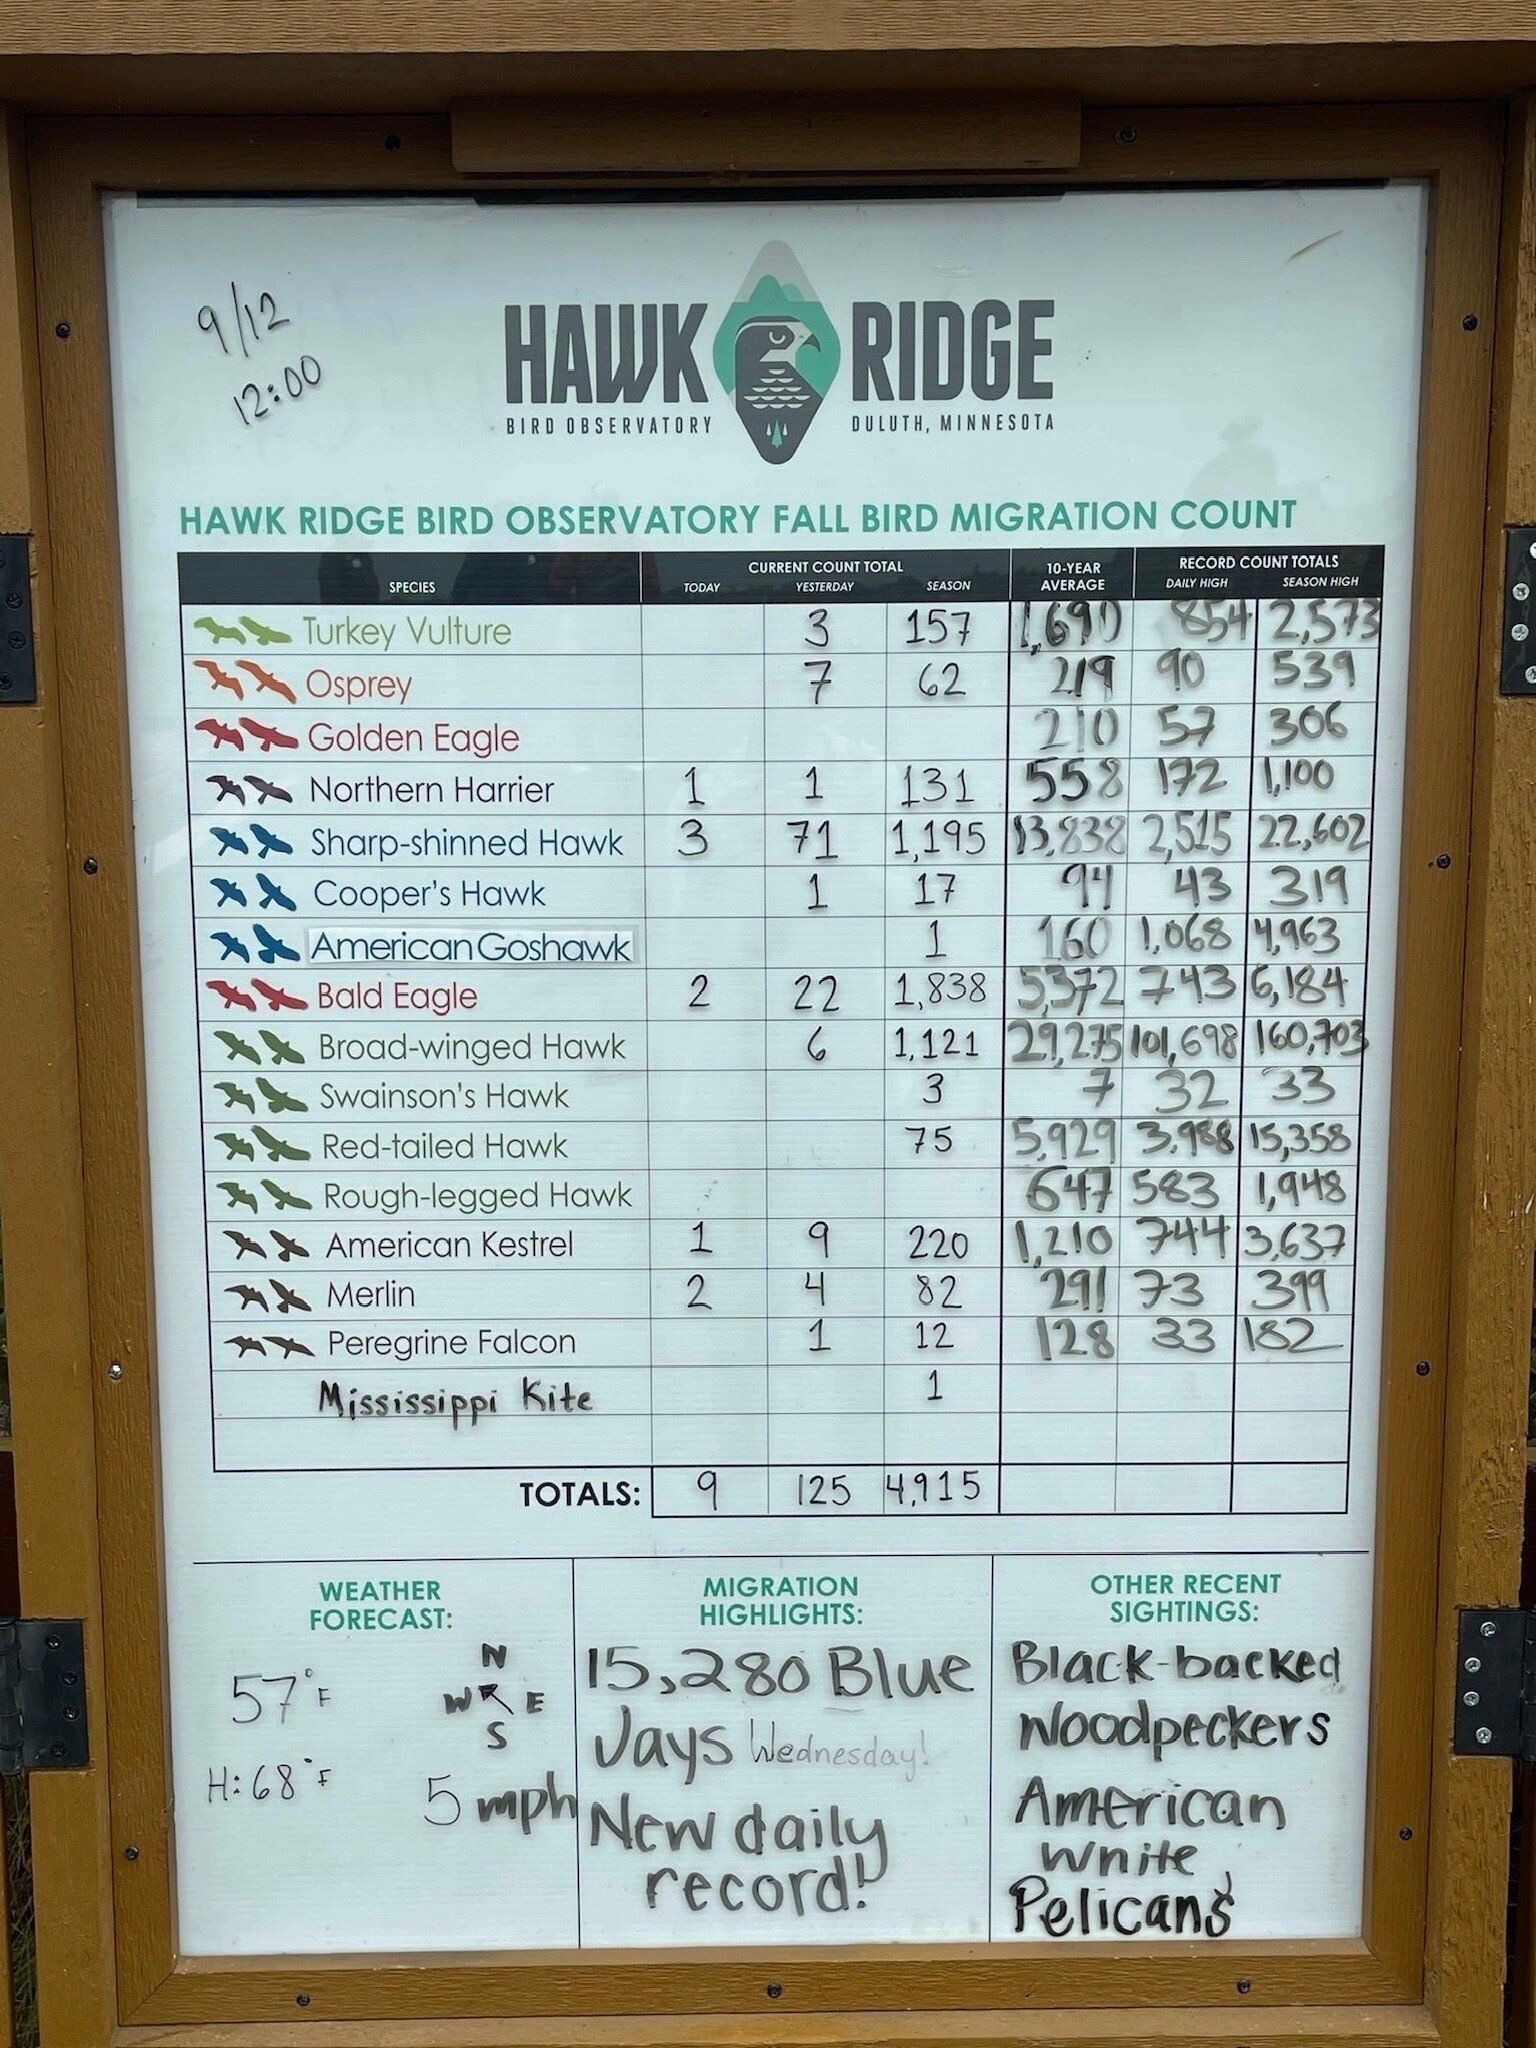 9/12
12:00
HAWK RIDGE
BIRD OBSERVATORY DULUTH, MINNESOTA
HAWK RIDGE BIRD OBSERVATORY FALL BIRD MIGRATION COUNT
CURRENT COUNT TOTAL 10-YEAR AVERAGE RECORD COUNT TOTALS
SPECIES TODAY YESTERDAY SEASON DAILY HIGH SEASON HIGH
Turkey Vulture 3 157 1,690 854 2,573
Osprey 7 62 219 90 539
Golden Eagle 210 57 306
Northern Harrier 1 1 131 558 172 1,100
Sharp-shinned Hawk 3 71 1,195 13,838 2,515 22,602
Cooper's Hawk 1 17 94 43 319
American Goshawk 1 160 1,068 4,963
Bald Eagle 2 22 1,838 5,372 743 6,184
Broad-winged Hawk 6 1,121 29,275 101,698 160,703
Swainson's Hawk 3 7 32 33
Red-tailed Hawk 75 5,929 3,988 15,358
Rough-legged Hawk 647 583 1,948
American Kestrel 1 9 220 1,210 744 3,637
Merlin 2 4 82 291 73 399
Peregrine Falcon 1 12 128 33 182
Mississippi Kite 1
TOTALS: 9 125 4,915
WEATHER
FORECAST:
57°F
H:68°F
N
W E
S
5 mph
MIGRATION
HIGHLIGHTS:
15,280 Blue
Jays Wednesday!
New daily
record!
OTHER RECENT
SIGHTINGS:
Black-backed
Woodpeckers
American
White
Pelicans